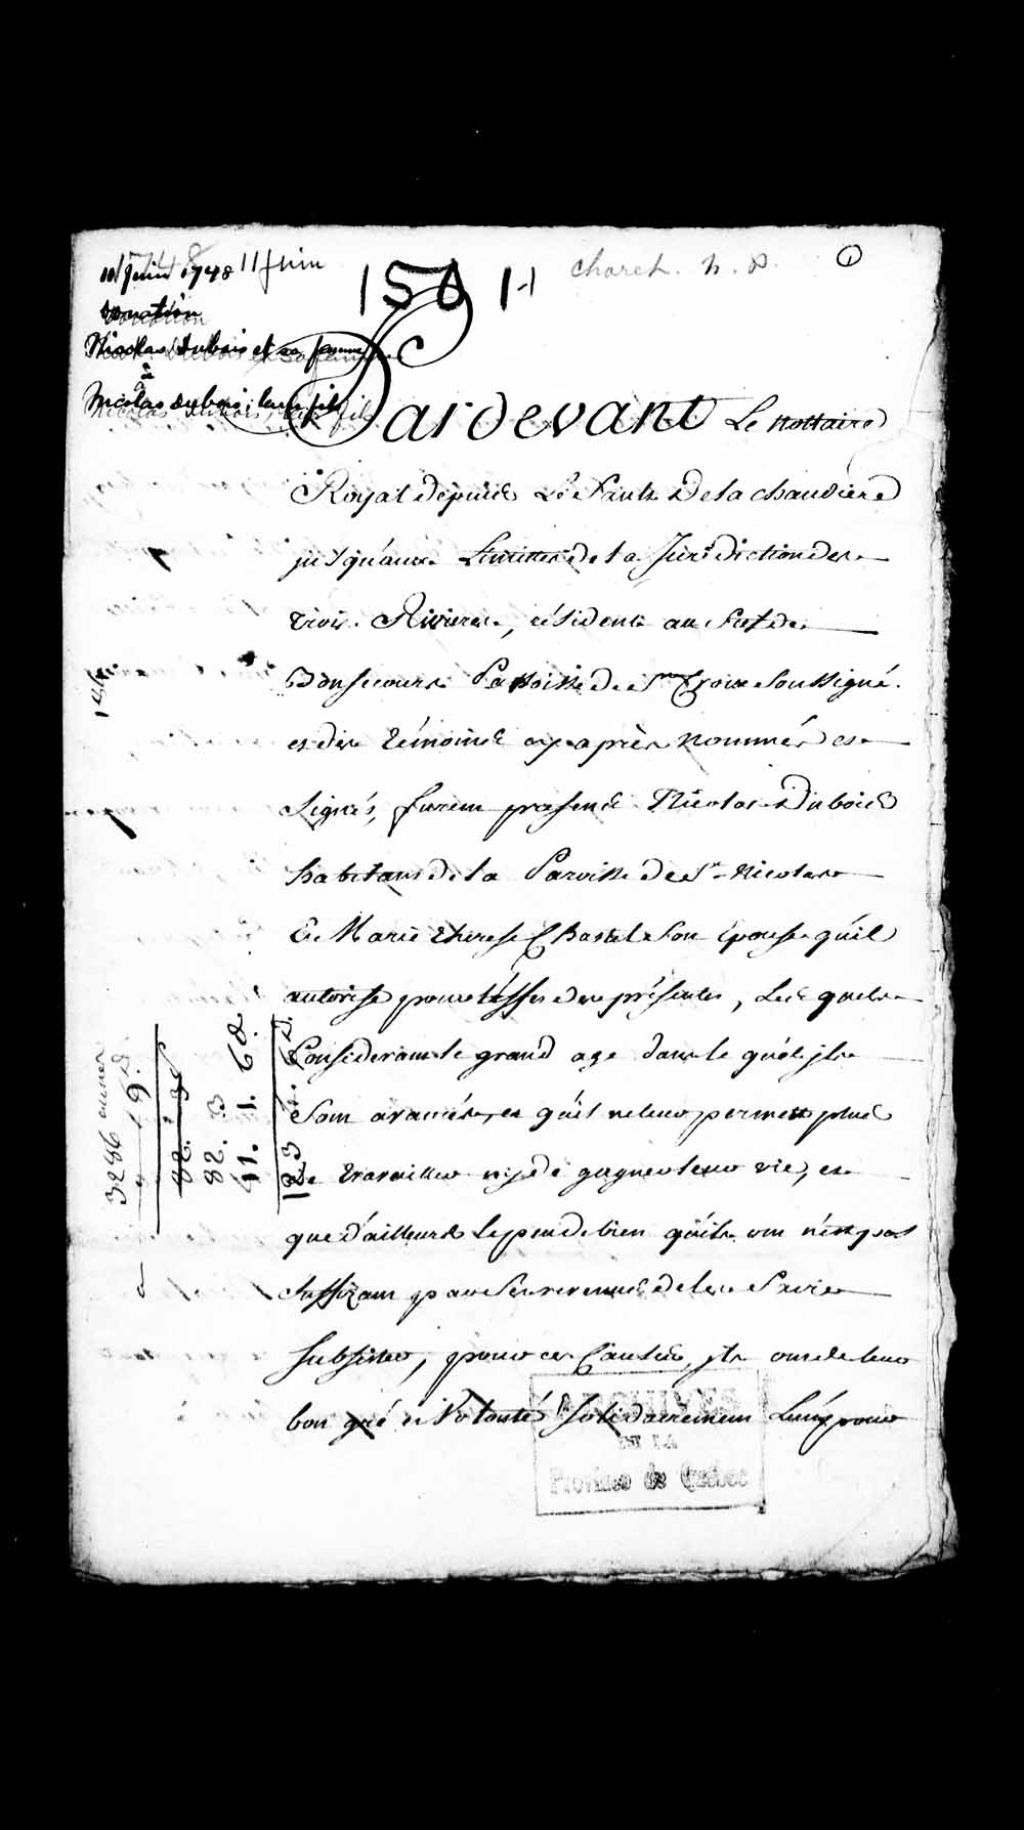 11 juin 1748 11 Juin
1501
①
donation
Nicolas dubois et sa femme
à
Nicolas dubois leur fils
Pardevant Le Nottaire
Royal depuis Le Sault de la chaudiere
jusqu'aux Limittes de la Jurisdiction des
trois Rivieres, résident au fief de
Bonsecours Paroisse de Ste Croix soussigné
et des témoins cy après nommés et
Signés, furent presents Nicolas Dubois
habitant de la Paroisse de St Nicolas
Et Marie therese Chastel son épouse qu'il
autorise pour l'effet des présentes, Lesquels
Considerant le grand age dans le quel ils
Sont avancés, et qu'il ne leur permet plus
de travailler ny de gagner leur vie, et
que d'ailleurs le peu de bien qu'ils ont n'est pas
suffizant par ses revenus de les faire
subsister, pour ces Causes, ils ont de leur
bon gré et Volonté solidairement L'un pour
ARCHIVES
DE LA
Province de Québec
82. 3
41. 1. 6d.
123